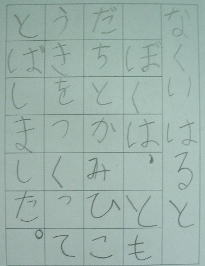 なくい はると
ぼくは、とも
だちとかみひこ
うきをつくって
とばしました。